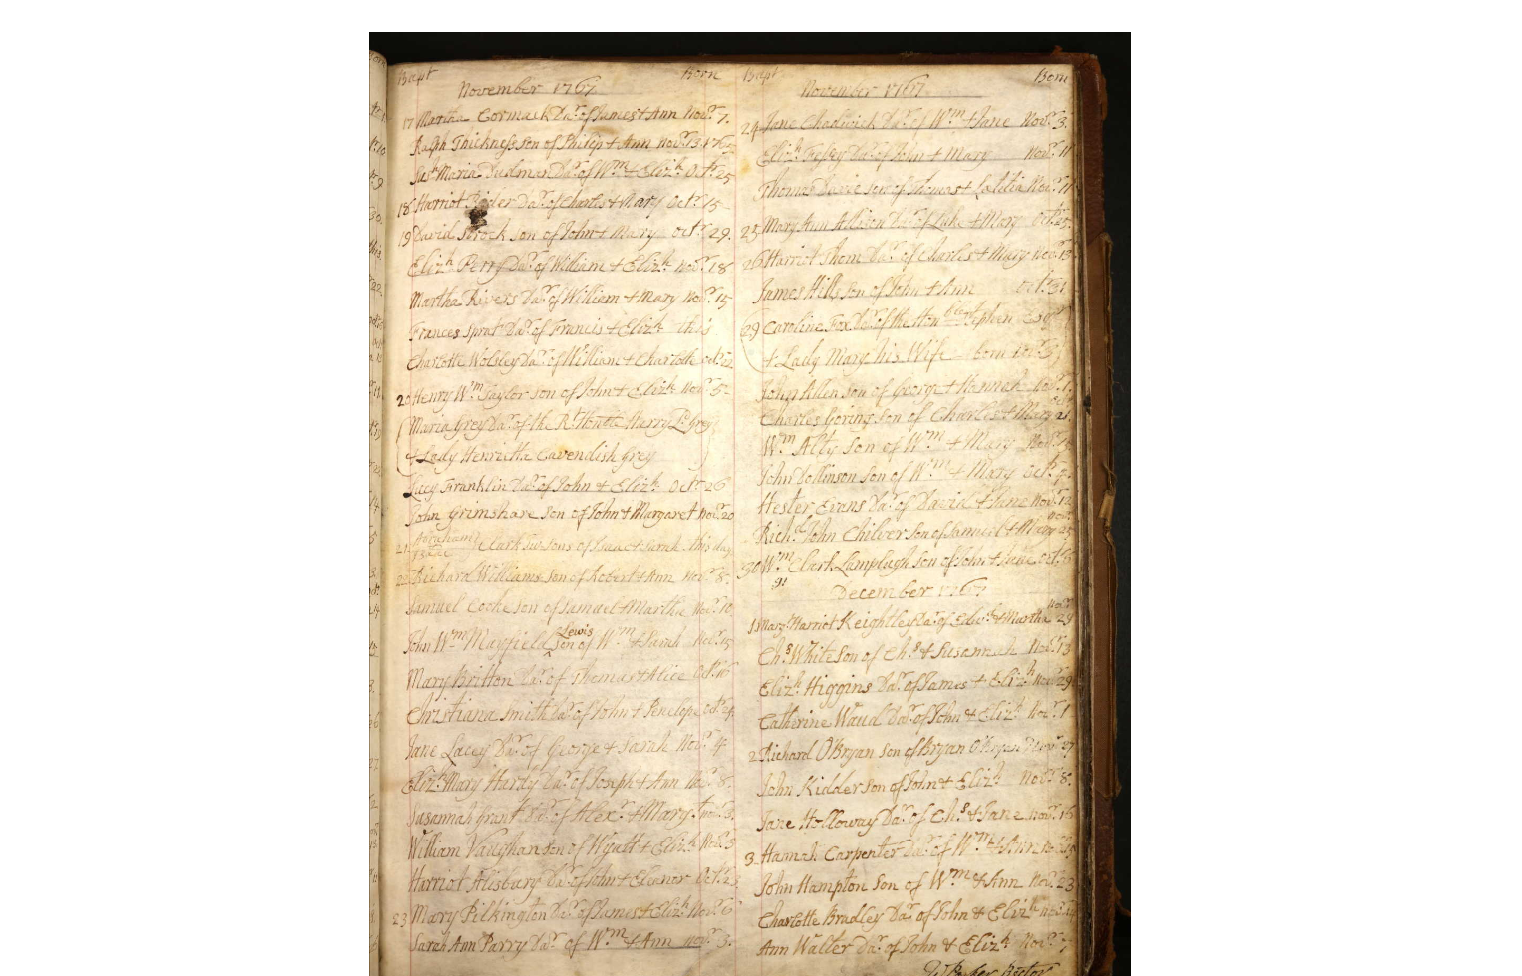 Bapt Born
November 1767
17 Martha Cormack Dar. of James & Ann Novr. 7.
Ralph Thickness son of Philip & Ann Novr. 13.
Maria Dar. of Wm. & Elizh. Octr. 25
18 Harriot Dar. of Charles & Mary Octr. 15
19 David son of John & Mary Octr. 29.
Elizh. Perry Dar. of William & Elizh. Novr. 18
Martha Rivers Dar. of William & Mary Novr. 15
Frances Sprat Dar. of Francis & Elizh. this
Charlotte Wolsley Dar. of William & Charlotte Octr. 22
20 Henry Wm. Taylor son of John & Elizh. Novr. 5
Maria Grey Dar. of the Rt. Honble Harry Ld. Grey
& Lady Henrietta Cavendish Grey
Lucy Franklin Dar. of John & Elizh. Octr. 26
John Grimshare son of John & Margaret Novr. 20
21 Abraham & Isaac Clark sons of Isaac & Sarah this day
22 Richard Williams son of Robert & Ann Novr. 8.
Samuel Cooke son of Samuel & Martha Novr. 10
John Wm. Mayfield Lewis son of Wm. & Sarah Novr. 15
Mary Britton Dar. of Thomas & Alice Octr. 16
Christiana Smith Dar. of John & Penelope Octr. 4.
Jane Lacey Dar. of George & Sarah Novr. 4
Elizh. Mary Hardy Dar. of Joseph & Ann Novr. 8.
Susannah Grant Dar. of Alexr. & Mary Novr. 3.
William Vaughan son of Wyatt & Elizh. Novr. 5
Harriot Alisbury Dar. of John & Eleanor Octr. 25
23 Mary Pilkington Dar. of James & Elizh. Novr. 6
Sarah Ann Parry Dar. of Wm. & Ann Novr. 3.
Bapt Born
November 1767
24 Jane Chadwick Dar. of Wm. & Jane Novr. 3.
Elizh. Dar. of John & Mary Novr. 11
Thomas Davie son of Thomas & Latitia Novr. 11
25 Mary Ann Allison Dar. of Luke & Mary Octr. 25.
26 Harriot Thom Dar. of Charles & Mary Novr. 13
James Hills son of John & Ann Octr. 31
29 Caroline Fox Dar. of the Hon ble Stephen Esqr.
& Lady Mary his Wife born Novr. 3
John Allen son of George & Hannah Novr. 1
Charles Goring son of Charles & Mary 21.
Wm. Alty son of Wm. & Mary Novr.
John Dollinson son of Wm. & Mary Octr. 9.
Hester Evans Dar. of David & Jane Novr. 12
Richd. John Chilver son of Samuel & Mary Novr. 25
30 Wm. Clark Lamplugh son of John & Jane Octr. 8
91
December 1767
1 Margt. Harriot Keightley Dar. of Edwd. & Martha Novr. 29
Chs. White son of Chs. & Susannah Novr. 13
Elizh. Higgins Dar. of James & Elizh. Novr. 29
Catherine Waud Dar. of John & Elizh. Novr. 1
2 Richard O'Bryan son of Bryan O'Bryan Novr. 27
John Kidder son of John & Elizh. Novr. 8.
Jane Holloway Dar. of Chs. & Jane Novr. 16
3 Hannah Carpenter Dar. of Wm. & Ann Novr. 15
John Hampton son of Wm. & Ann Novr. 23
Charlotte Bradley Dar. of John & Elizh. Novr.
Ann Walter Dar. of John & Elizh. Novr. 7
Rector